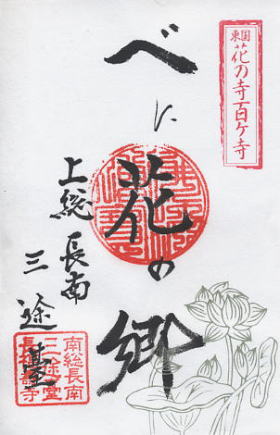 東国
花の寺百ヶ寺
べに花の郷
上総長南
三途臺
南総長南
三途堂
長福寿寺